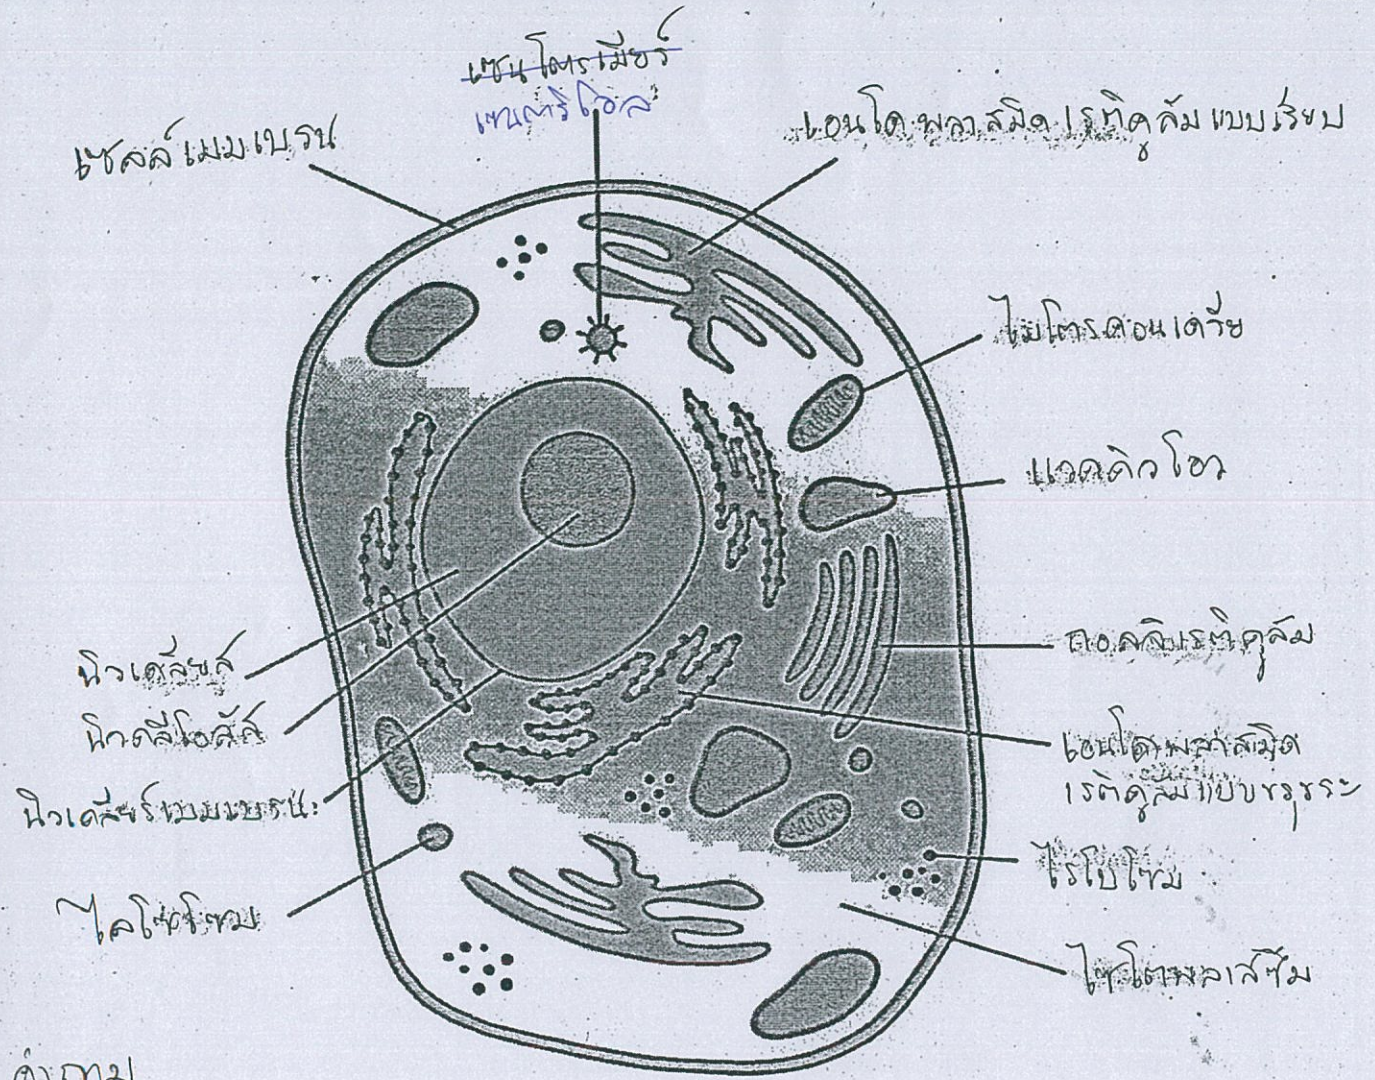 เซนโตรเมียร์
เซนตริโอล
เซลล์เมมเบรน
เอนโดพลาสมิดเรติคูลัมแบบเรียบ
ไมโตรคอนเดรีย
แวคคิวโอว
กอลลิเรติคูลัม
เอนโดพลาสมิด
เรติคูลัมแบบขรุขระ
ไรโบโซม
ไซโตพลาสซึม
นิวเคลียส
นิวคลีโอลัส
นิวเคลียร์เมมเบรน
ไลโซโซม
คำถาม